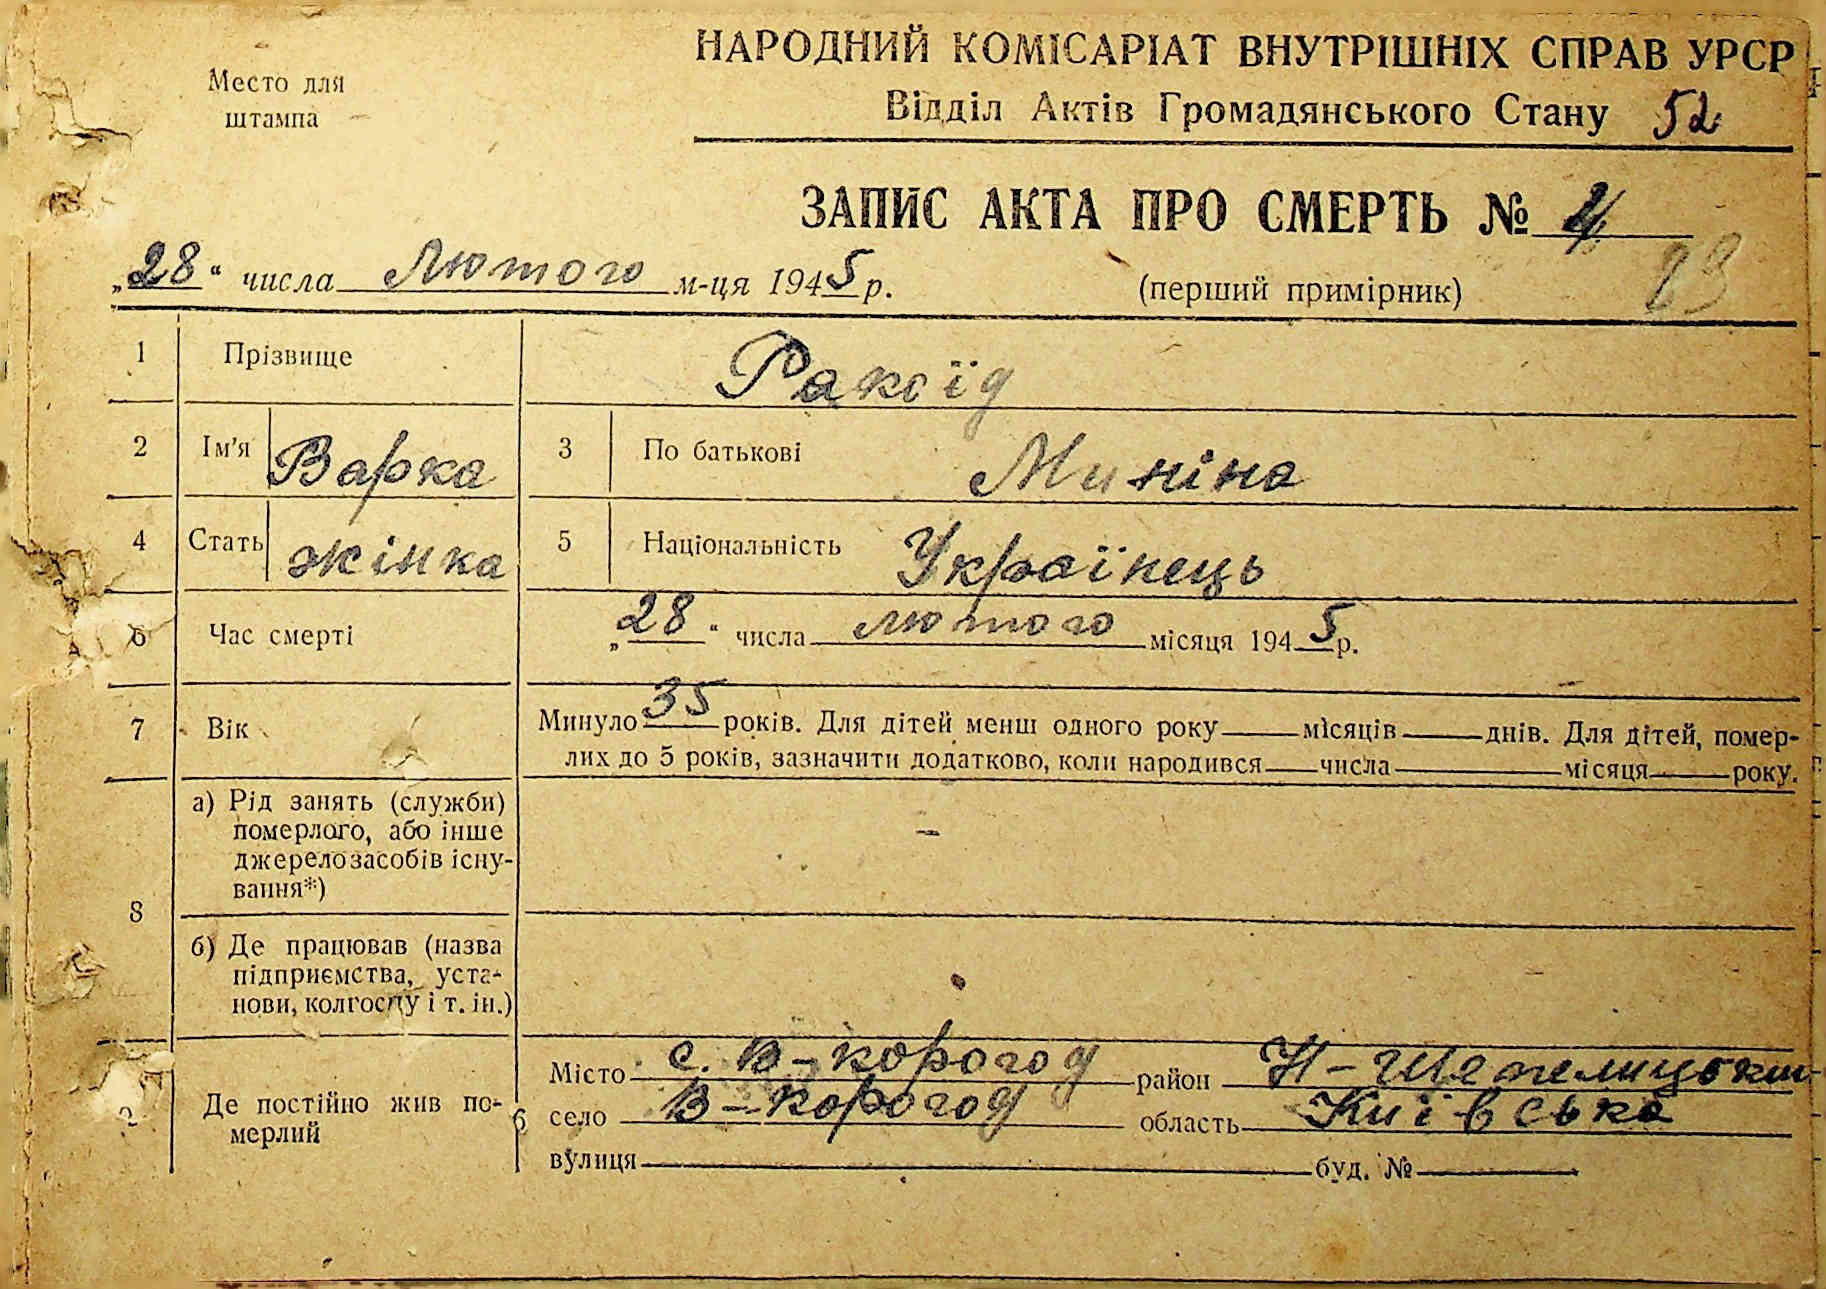 Место для
штампа
НАРОДНИЙ КОМІСАРІАТ ВНУТРІШНІХ СПРАВ УРСР
Відділ Актів Громадянського Стану 52
ЗАПИС АКТА ПРО СМЕРТЬ № 4
„28“ числа Лютого м-ця 1945 р.
(перший примірник) 23
1 Прізвище Раксїд
2 Ім'я Варка 3 По батькові Миніна
4 Стать жінка 5 Національність Українець
6 Час смерті „28“ числа лютого місяця 1945 р.
7 Вік Минуло 35 років. Для дітей менш одного року місяців днів. Для дітей, помер-
лих до 5 років, зазначити додатково, коли народився числа місяця року.
8 а) Рід занять (служби)
померлого, або інше
джерело засобів існу-
вання*)
–
б) Де працював (назва
підприємства, уста-
нови, колгоспу і т. ін.)
Де постійно жив по-
мерлий
Місто с. В-корогод район Н-Шепелицький
село В-корогод область Київська
вулиця буд. №